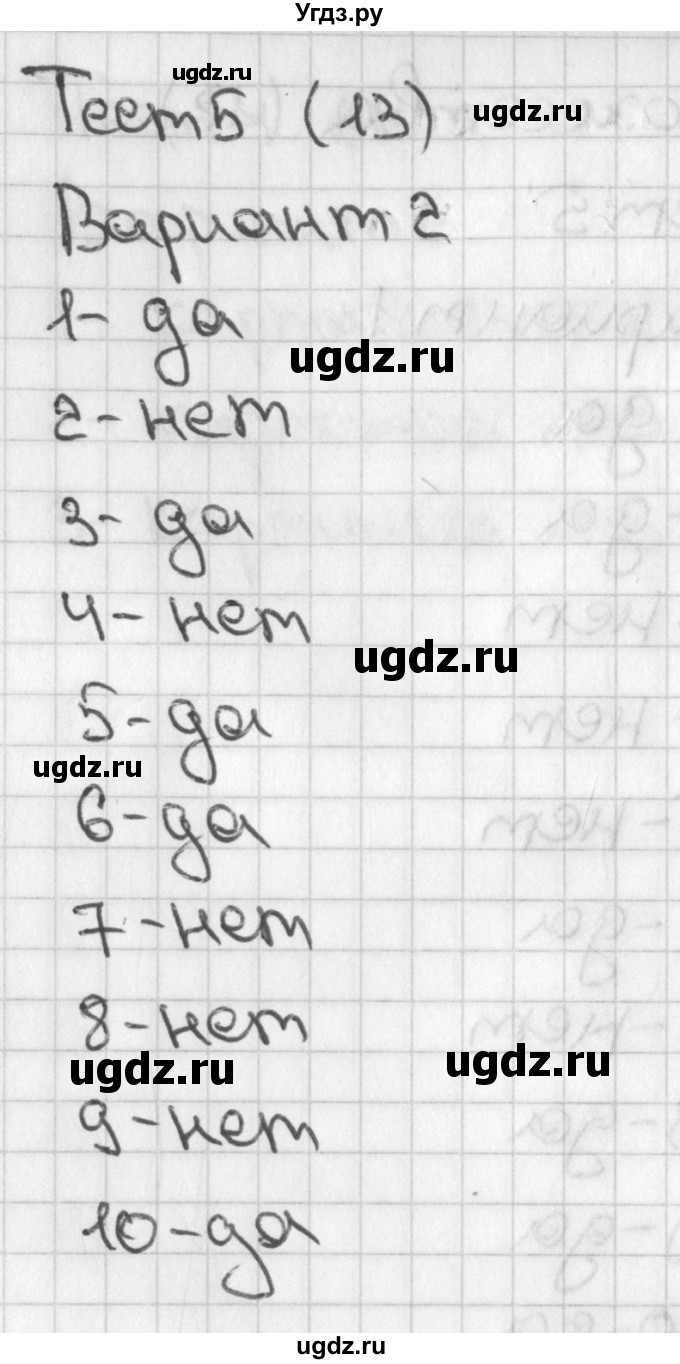 Угдз.ру
ugdz.ru
Тест 5 (13)
ugdz.ru
Вариант 2
1- да
ugdz.ru
2- нет
3- да
4- нет
ugdz.ru
5- да
ugdz.ru
6- да
7- нет
8- нет
ugdz.ru
ugdz.ru
9- нет
10- да
ugdz.ru